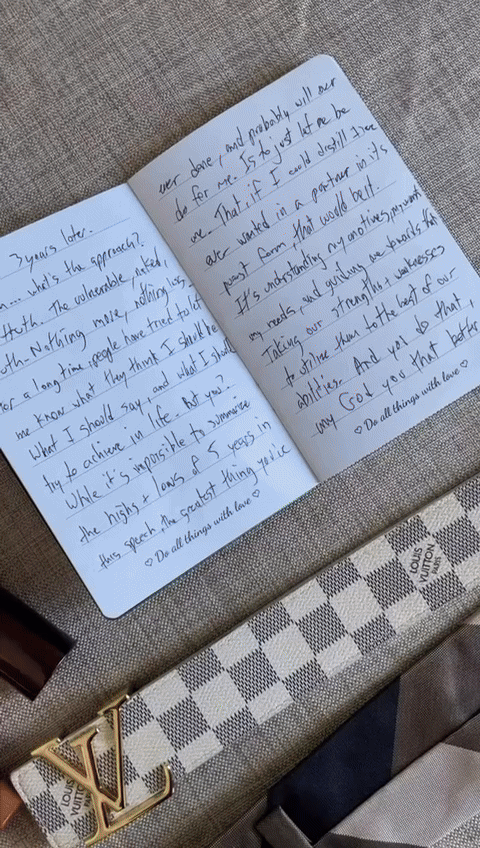 3 years later.
... what's the approach?
truth. The vulnerable, naked,
truth. Nothing more, nothing less.
For a long time, people have tried to let
me know what they think I should be
What I should say, and what I should
try to achieve in life. But you?
While it's impossible to summarize
the highs + lows of 5 years in
this speech, the greatest thing you've
♡ Do all things with love ♡
ever done, and probably will ever
do for me. Is to just let me be
me. That if I could distill
ever wanted in a partner in its
purest form, that would be it.
It's understanding my emotions, my wants
my needs, and guiding me towards the
Taking our strengths + weaknesses
to utilize them to the best of our
abilities. And you do that,
my God you do that better
♡ Do all things with love ♡
LOUIS
VUITTON
PARIS
LV
LOUIS
VUITTON
PARIS